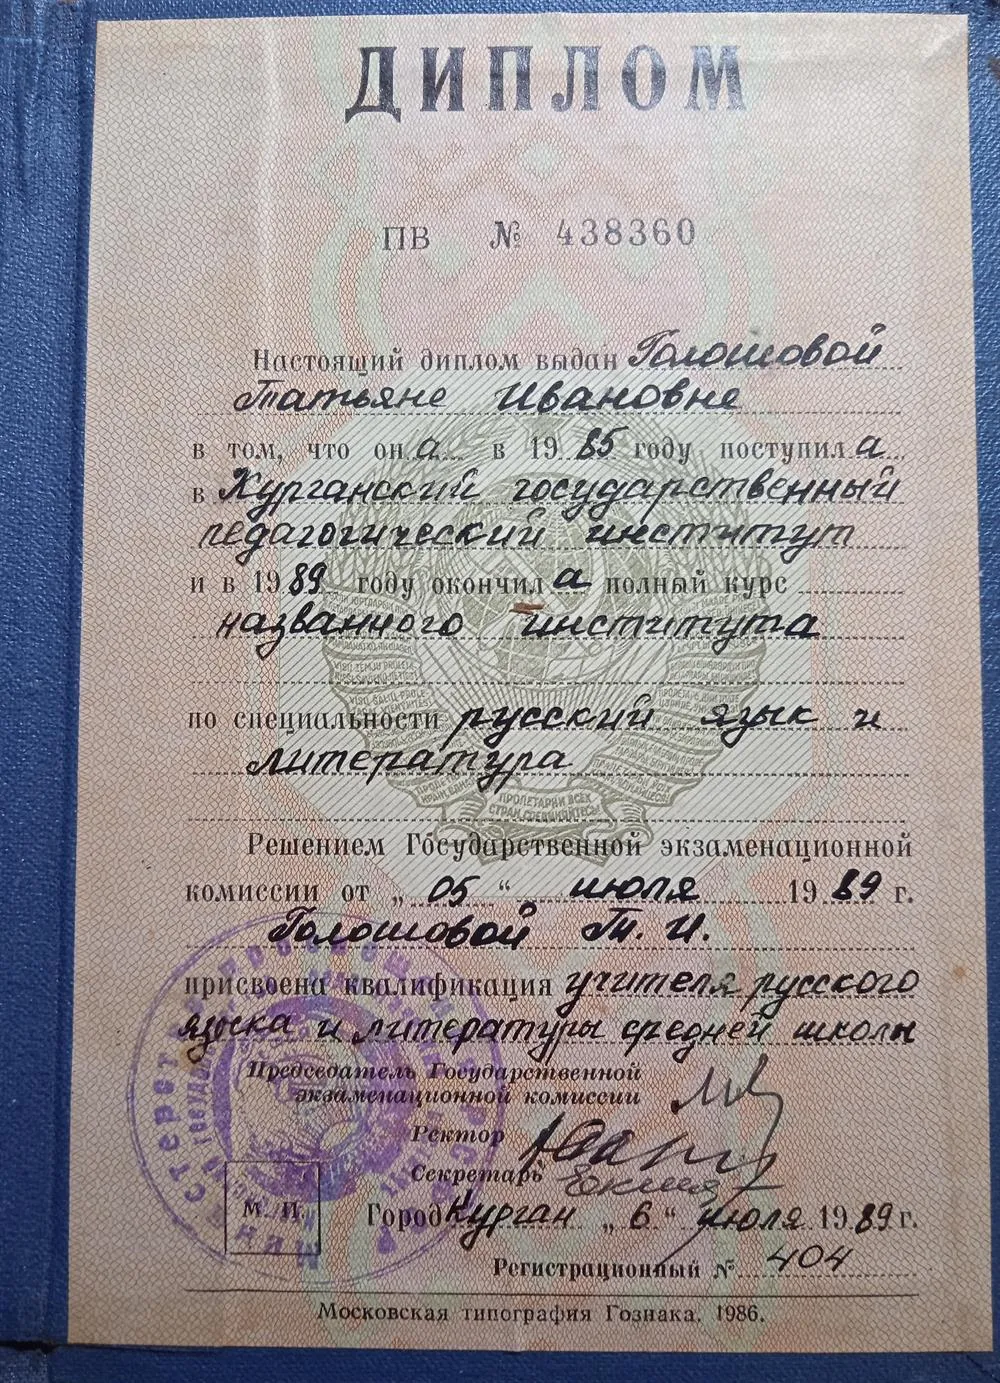 ДИПЛОМ
ПВ № 438360
Настоящий диплом выдан Голошовой
Татьяне Ивановне
в том, что она в 1985 году поступила
в Курганский государственный
педагогический институт
и в 1989 году окончила полный курс
названного института
по специальности русский язык и
литература
ПРОЛЕТАРИИ ВСЕХ
СТРАН, СОЕДИНЯЙТЕСЬ!
Решением Государственной экзаменационной
комиссии от „05“ июля 1989 г.
Голошовой Т. И.
присвоена квалификация учителя русского
языка и литературы средней школы
Председатель Государственной
экзаменационной комиссии
Ректор
Секретарь
М. П.
Город Курган „6“ июля 1989 г.
Регистрационный № 404
Московская типография Гознака. 1986.